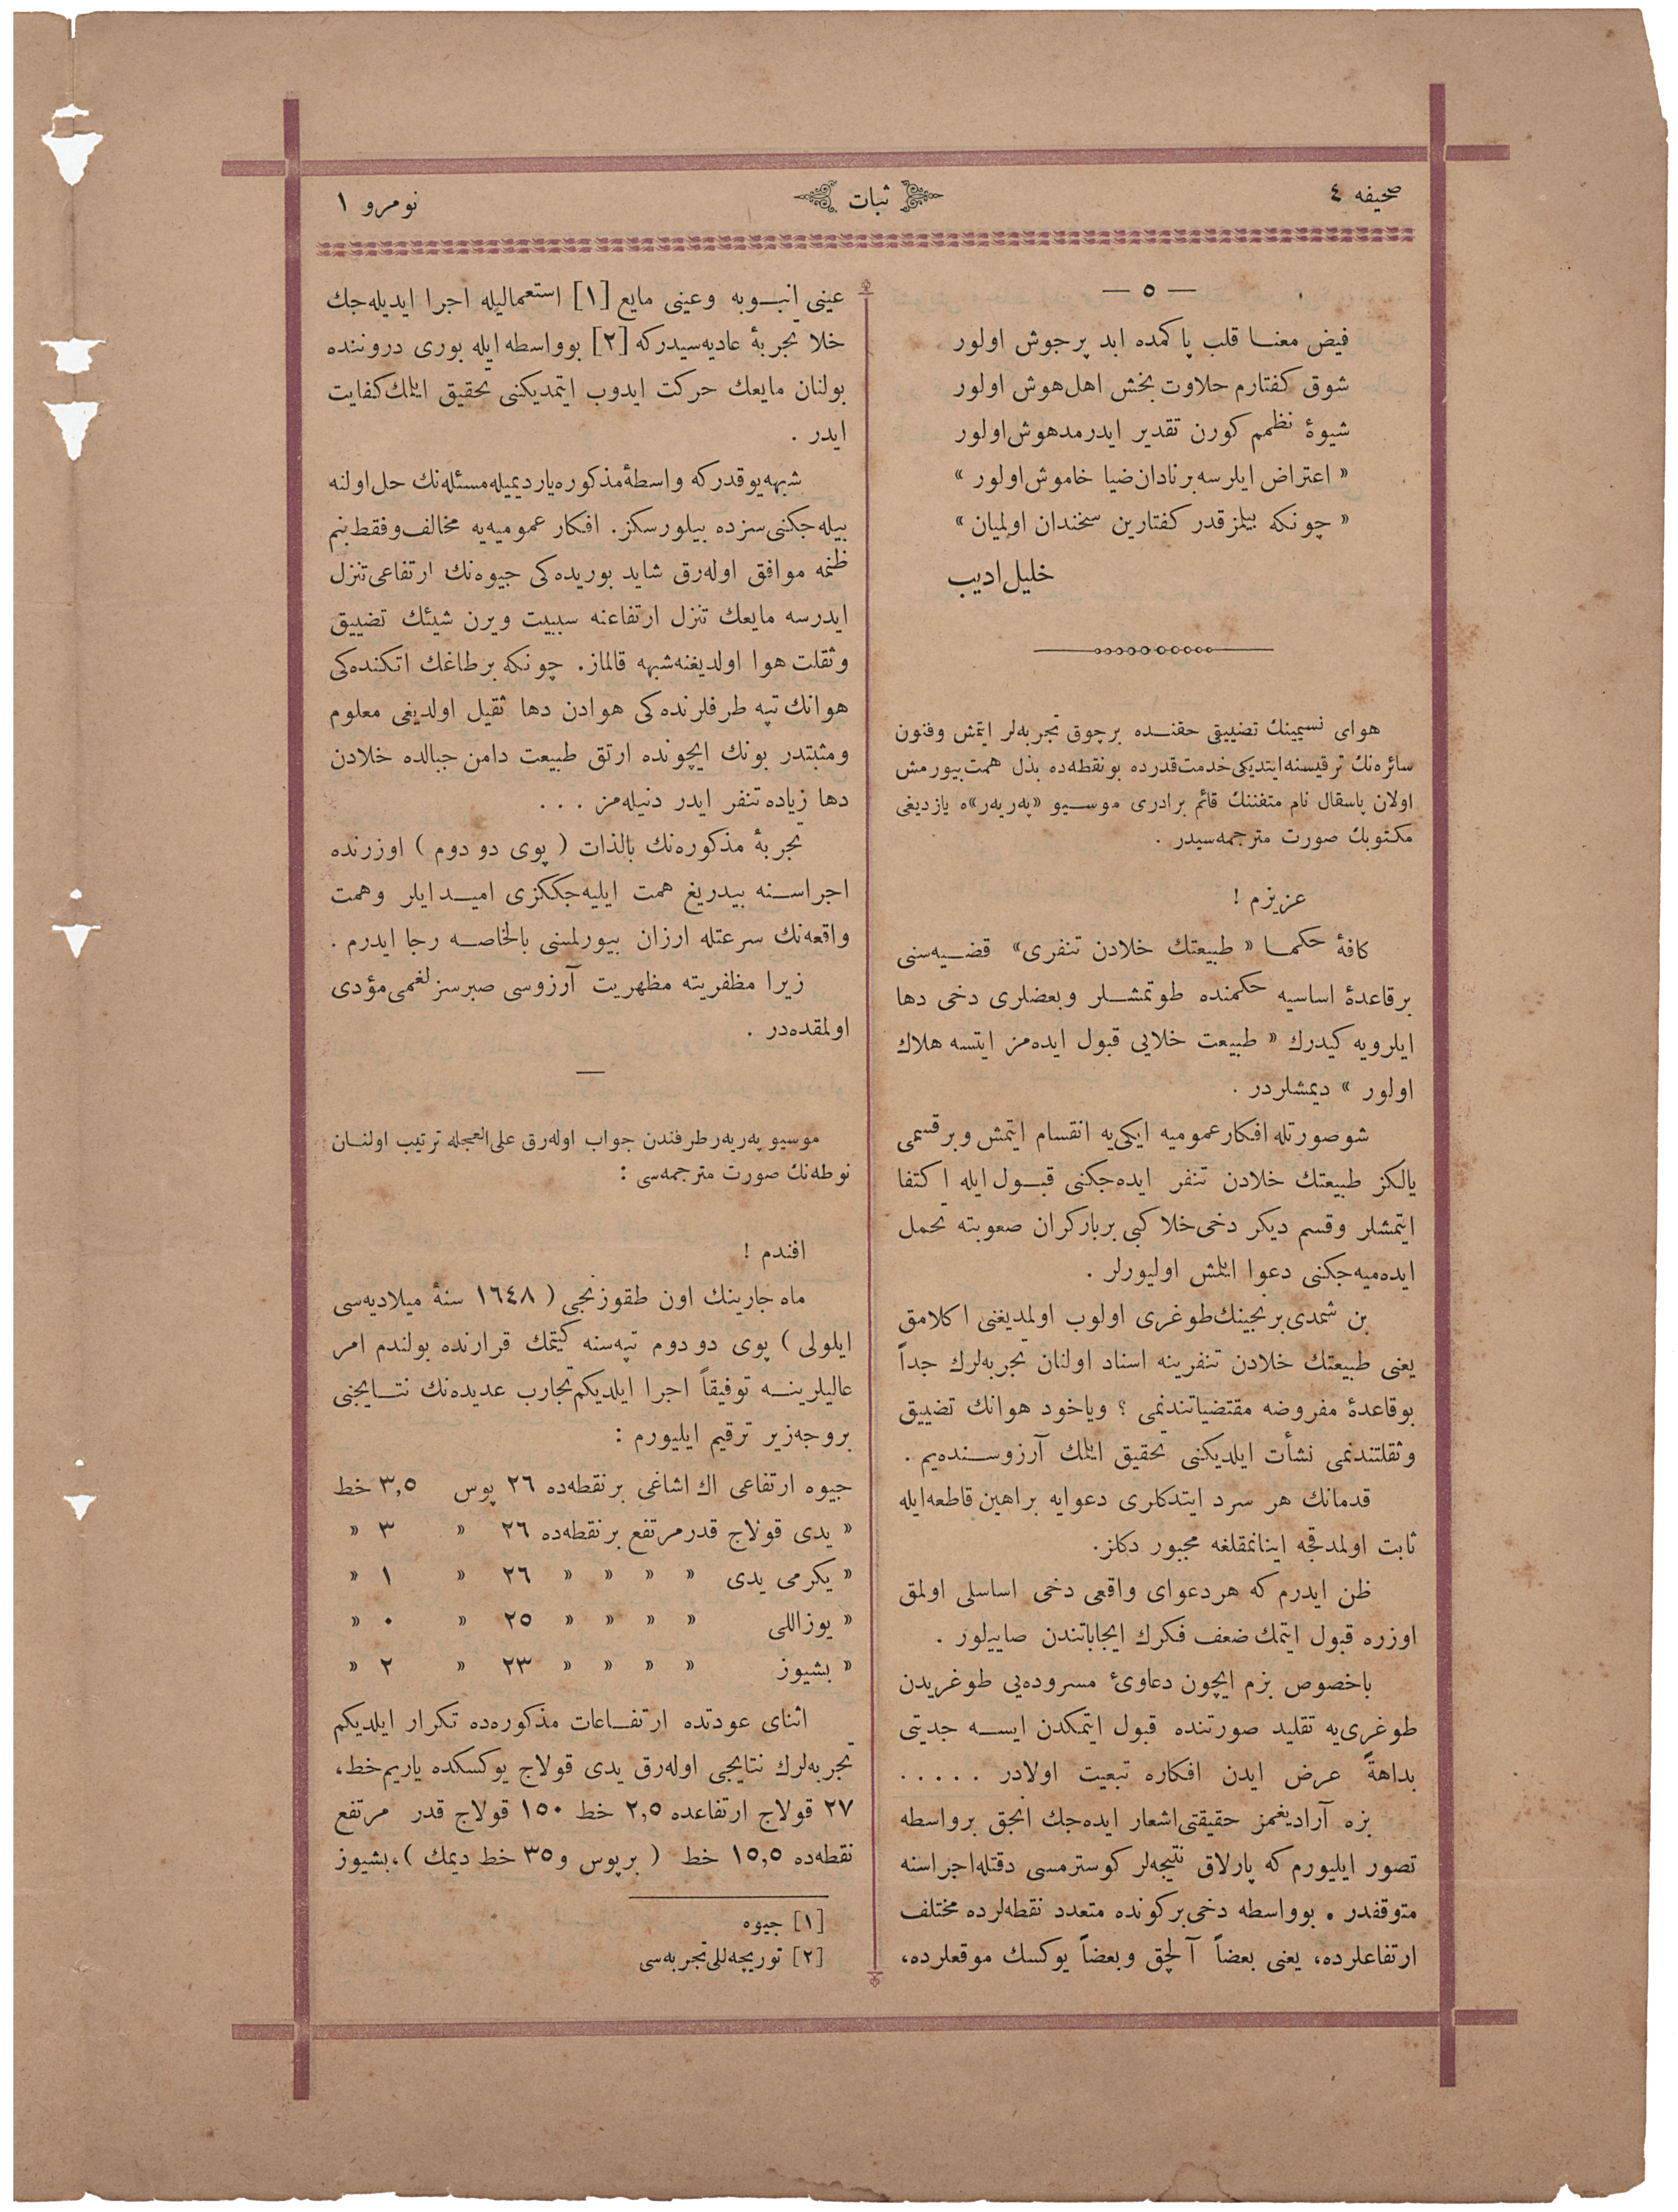 صحیفه ٤
ثبات
نومرو ١
— ٥ —
فیض معنا قلب پاكمده ابد پرجوش اولور
شوق كفتارم حلاوت بخش اهل هوش اولور
شیوۀ نظمم كورن تقدیر ایدر مدهوش اولور
« اعتراض ایلرسه بر نادان ضیا خاموش اولور »
« چونكه بیلمز قدر كفتارین سخندان اولمیان »
خلیل ادیب
هوای نسیمینك تضییقی حقنده برچوق تجربه‌لر ایتمش وفنون
سائره‌نك ترقیسنه ایتدیكی خدمت قدرده بونقطه‌ده بذل همت بیورمش
اولان پاسقال نام متفننك قائم برادری موسیو «په‌ریه‌ر»ه یازدیغی
مكتوبك صورت مترجمه‌سیدر .
عزیزم !
كافۀ حكما « طبیعتك خلادن تنفری» قضیه‌سنی
برقاعدۀ اساسیه حكمنده طوتمشلر وبعضلری دخی دها
ایلرویه كیدرك « طبیعت خلایی قبول ایده‌مز ایتسه هلاك
اولور » دیمشلردر .
شوصورتله افكار عمومیه ایكی‌یه انقسام ایتمش وبرقسمی
یالكز طبیعتك خلادن تنفر ایده‌جكنی قبول ایله اكتفا
ایتمشلر وقسم دیكر دخی خلا كبی بربار كران صعوبته تحمل
ایده‌میه‌جكنی دعوا ایلمش اولیورلر .
بن شمدی برنجینك طوغری اولوب اولمدیغنی اكلامق
یعنی طبیعتك خلادن تنفرینه اسناد اولنان تجربه‌لرك جداً
بوقاعدۀ مفروضه مقتضیاتندنمی ؟ ویاخود هوانك تضییق
وثقلتندنمی نشأت ایلدیكنی تحقیق ایلمك آرزوسنده‌یم .
قدمانك هر سرد ایتدكلری دعوایه براهین قاطعه‌ایله
ثابت اولمدقجه اینانمقلغه مجبور دكلز.
ظن ایدرم كه هر دعوای واقعی دخی اساسلی اولمق
اوزره قبول ایتمك ضعف فكرك ایجاباتندن صاییلور .
باخصوص بزم ایچون دعاویٔ مسروده‌یی طوغریدن
طوغری‌یه تقلید صورتنده قبول ایتمكدن ایسه جدیتی
بداهةً عرض ایدن افكاره تبعیت اولادر .....
بزه آرادیغمز حقیقتی اشعار ایده‌جك انجق برواسطه
تصور ایلیورم كه پارلاق نتیجه‌لر كوسترمسی دقتله اجراسنه
متوقفدر . بوواسطه دخی بركونده متعدد نقطه‌لرده مختلف
ارتفاعلرده، یعنی بعضاً آلچق وبعضاً یوكسك موقعلرده،
عینی انبوبه وعینی مایع [١] استعمالیله اجرا ایدیله‌جك
خلا تجربۀ عادیه‌سیدركه [٢] بوواسطه ایله بوری دروننده
بولنان مایعك حركت ایدوب ایتمدیكنی تحقیق ایلمك كفایت
ایدر .
شبهه یوقدركه واسطۀ مذكوره یاردیمیله مسئله‌نك حل اولنه
بیله‌جكنی سزده بیلورسكز. افكار عمومیه‌یه مخالف وفقط بنم
ظنمه موافق اوله‌رق شاید بوریده‌كی جیوه‌نك ارتفاعی تنزل
ایدرسه مایعك تنزل ارتفاعنه سببیت ویرن شیئك تضییق
وثقلت هوا اولدیغنه شبهه قالماز. چونكه برطاغك اتكنده‌كی
هوانك تپه طرفلرنده‌كی هوادن دها ثقیل اولدیغی معلوم
ومثبتدر بونك ایچونده ارتق طبیعت دامن جبالده خلادن
دها زیاده تنفر ایدر دنیله‌مز ...
تجربۀ مذكوره‌نك بالذات ( پوی دو دوم ) اوزرنده
اجراسنه بیدریغ همت ایلیه‌جككزی امید ایلر وهمت
واقعه‌نك سرعتله ارزان بیورلمسنی بالخاصه رجا ایدرم .
زیرا مظفریته مظهریت آرزوسی صبرسزلغمی مؤدی
اولمقده‌در .
—
موسیو په‌ریه‌ر طرفندن جواب اوله‌رق علی‌العجله ترتیب اولنان
نوطه‌نك صورت مترجمه‌سی :
افندم !
ماه جارینك اون طقوزنجی ( ١٦٤٨ سنۀ میلادیه‌سی
ایلولی ) پوی دو دوم تپه‌سنه كیتمك قرارنده بولندم امر
عالیلرینه توفیقاً اجرا ایلدیكم تجارب عدیده‌نك نتایجنی
بروجه‌زیر ترقیم ایلیورم :
جیوه ارتفاعی اك اشاغی برنقطه‌ده ٢٦ پوس ٣,٥ خط
« یدی قولاج قدر مرتفع برنقطه‌ده ٢٦ « ٣ «
« یكرمی یدی « « « « ٢٦ « ١ «
« یوزاللی « « « « ٢٥ « ٠ «
« بشیوز « « « « ٢٣ « ٢ «
اثنای عودتده ارتفاعات مذكوره‌ده تكرار ایلدیكم
تجربه‌لرك نتایجی اوله‌رق یدی قولاج یوكسكده یاریم خط،
٢٧ قولاج ارتفاعده ٢,٥ خط ١٥٠ قولاج قدر مرتفع
نقطه‌ده ١٥,٥ خط ( برپوس و٣٥ خط دیمك )، بشیوز
[١] جیوه
[٢] توریچه‌للی تجربه‌سی